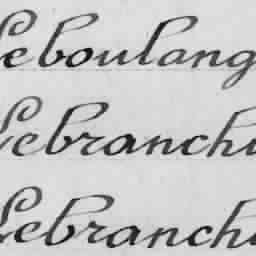 Leboulang
Lebranch
Lebranch